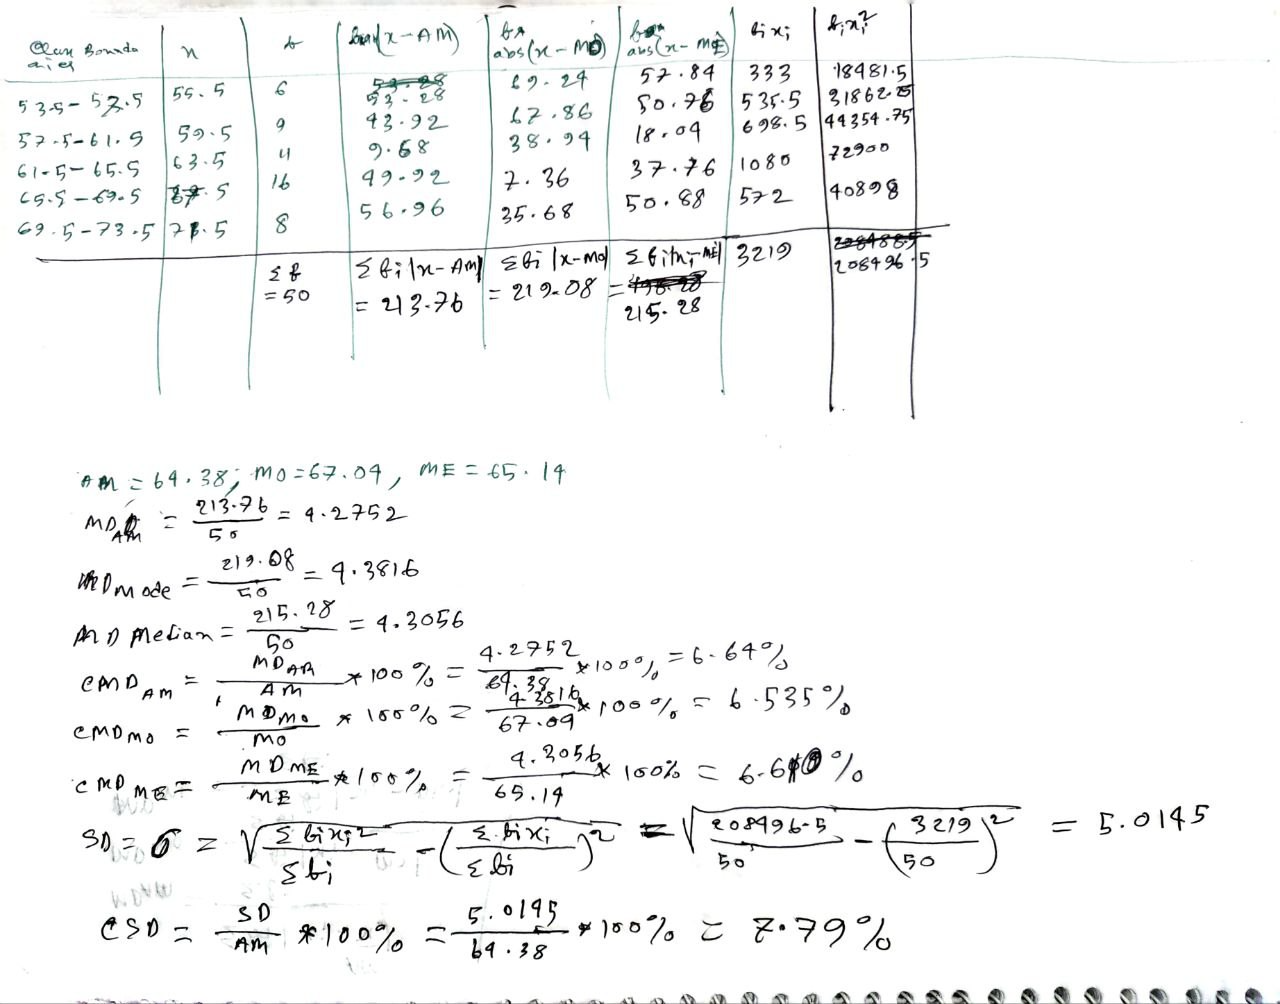 Class Boundaries | x | f | f*abs(x-AM) | f* abs(x-MO) | f* abs(x-ME) | fixi | fixi²
53.5-57.5 | 55.5 | 6 | 53.28 | 69.24 | 57.84 | 333 | 18481.5
57.5-61.5 | 59.5 | 9 | 43.92 | 67.86 | 50.76 | 535.5 | 31862.25
61.5-65.5 | 63.5 | 11 | 9.68 | 38.94 | 18.04 | 698.5 | 44354.75
65.5-69.5 | 67.5 | 16 | 49.92 | 7.36 | 37.76 | 1080 | 72900
69.5-73.5 | 71.5 | 8 | 56.96 | 35.68 | 50.88 | 572 | 40898
Σf = 50 | Σfi|x-AM| = 213.76 | Σfi|x-Mo| = 219.08 | Σfi|xi-ME| = 215.28 | 3219 | 208496.5
AM = 64.38; MO = 67.04, ME = 65.14
MD AM = 213.76/50 = 4.2752
MD mode = 219.08/50 = 4.3816
MD Median = 215.28/50 = 4.3056
CMD AM = MD AM/AM * 100% = 4.2752/64.38 * 100% = 6.64%
CMD MO = MD MO/MO * 100% = 4.3816/67.04 * 100% = 6.535%
CMD ME = MD ME/ME * 100% = 4.3056/65.14 * 100% = 6.610%
SD = σ = √(Σfixi²/Σfi - (Σfixi/Σfi)²) = √(208496.5/50 - (3219/50)²) = 5.0145
CSD = SD/AM * 100% = 5.0145/64.38 * 100% = 7.79%